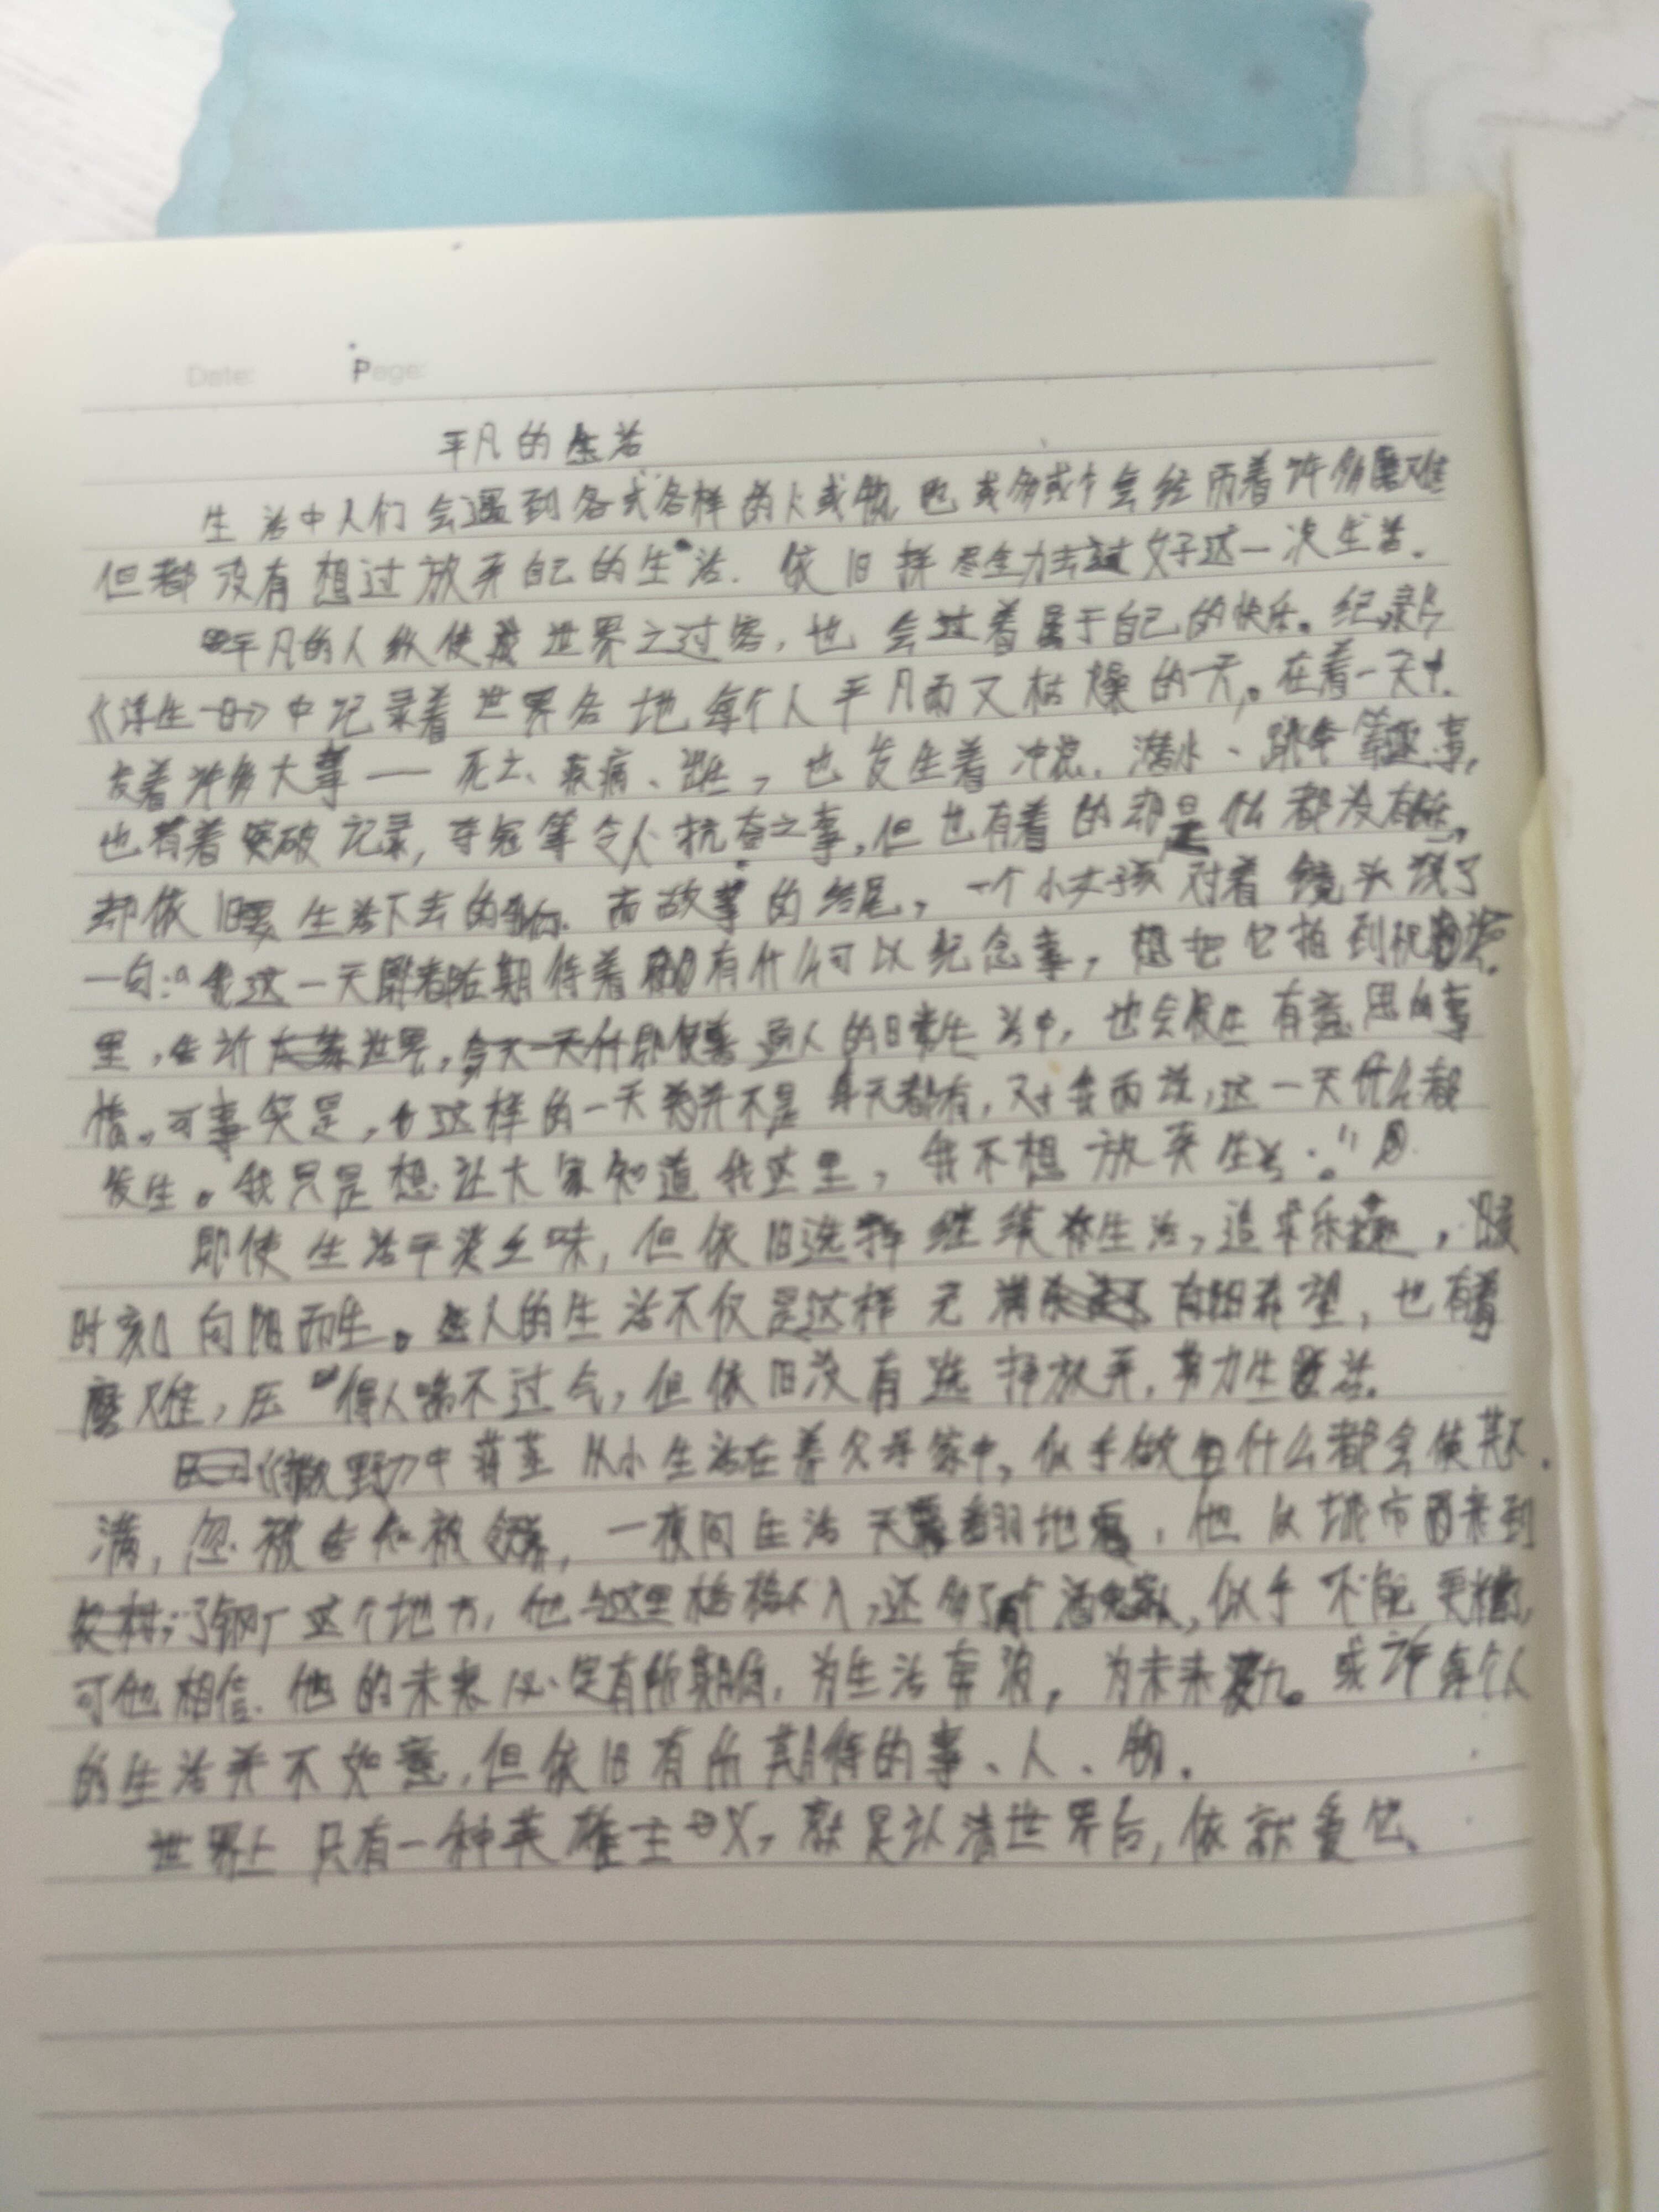 Date: Page:
平凡的生活
生活中人们会遇到各式各样的人或物,也或多或少会经历着许多磨难
但都没有想过放弃自己的生活.依旧拼尽全力去过好这一次生活.
平凡的人纵使是世界之过客,也会过着属于自己的快乐。纪录片
《浮生一日》中记录着世界各地每个人平凡而又枯燥的一天。在着一天中.
发着许多大事——死亡、疾病、出生,也发生着冲浪、潜水、跳伞等趣事,
也有着突破记录,夺冠等令人抗奋之事,但也有着的却是什么都没有
却依旧要生活下去的 而故事的结尾,一个小女孩对着镜头说了
一句:“我这一天 都在期待着 有什么可以纪念事,想把它拍到
里,告诉 世界, 人的日常生活中,也会发生有意思的事
情。可事实是,这样的一天 并不是每天都有,对我而说,这一天什么都
发生。我只是想让大家知道我这里,我不想放弃生活。”
即使生活平淡乏味,但依旧选择继续 生活,追求乐趣,
时刻向阳而生。人的生活不仅是这样充满 希望,也有着
磨难,压得人喘不过气,但依旧没有选择放弃,努力生活.
《撒野》中蒋丞从小生活在养父母家中,似乎做什么都会使其不
满,忽被告知被领养,一夜间生活天翻地覆,他从城市 来到
了钢厂这个地方,他与这里格格不入,还多了 酒鬼家人,似乎不能更糟,
可他相信.他的未来必定有所期待,为生活奔波,为未来 。或许每个人
的生活并不如意,但依旧有所期待的事、人、物.
世界上只有一种英雄主义,就是认清世界后,依就爱它.